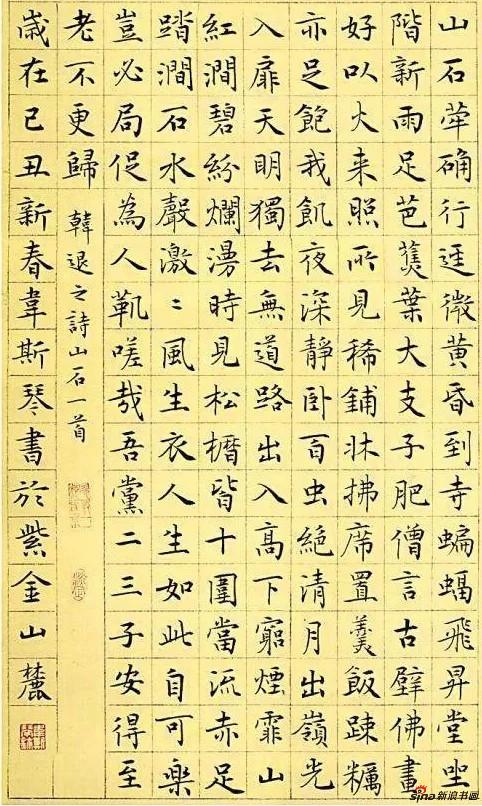 山石犖确行逕微黄昏到寺蝙蝠飛昇堂坐
階新雨足芭蕉葉大支子肥僧言古壁佛畫
好以火来照所見稀鋪牀拂席置羹飯踈糲
亦足飽我飢夜深靜卧百虫絶清月出嶺光
入扉天明獨去無道路出入高下窮煙霏山
紅澗碧紛爛漫時見松櫪皆十圍當流赤足
踏澗石水聲激〻風生衣人生如此自可樂
豈必局促為人鞿嗟哉吾黨二三子安得至
老不更歸 韓退之詩山石一首
歲在己丑新春韋斯琴書於紫金山麓
sina新浪书画